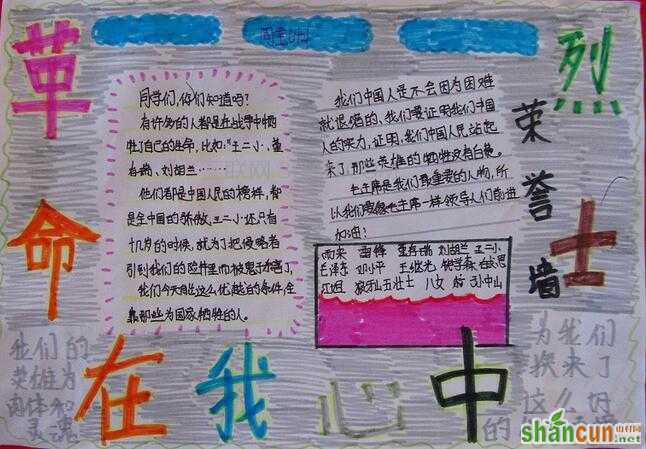 革命烈士在我心中
荣誉墙
同学们,你们知道吗?
有许多的人都是在战争中牺
牲了自己的生命,比如:"王二小、董
存瑞、刘胡兰……
他们都是中国人民的榜样,都
是全中国的骄傲,王二小还只有
十几岁的时候,就为了把侵略者
引到我们的
我们今天有这么优越的条件,全
靠那些为国家牺牲的人。
我们中国人是不会因为困难
就退缩的,我们要证明我们中国
人的实力,证明,我们中国人民站起
来了,那些英雄的牺牲没有白费。
毛主席是我们最重要的人物,所
以我们要像毛主席一样领导人们前进
加油!
雨来 雷锋 董存瑞 刘胡兰 王二小
毛泽东 邓小平 王继光 钱学森
江姐 狼牙山五壮士 八女 孙中山
我们的
英雄为
肉体和
灵魂
为我们
换来了
这么好
的
shancun
山村网
.net